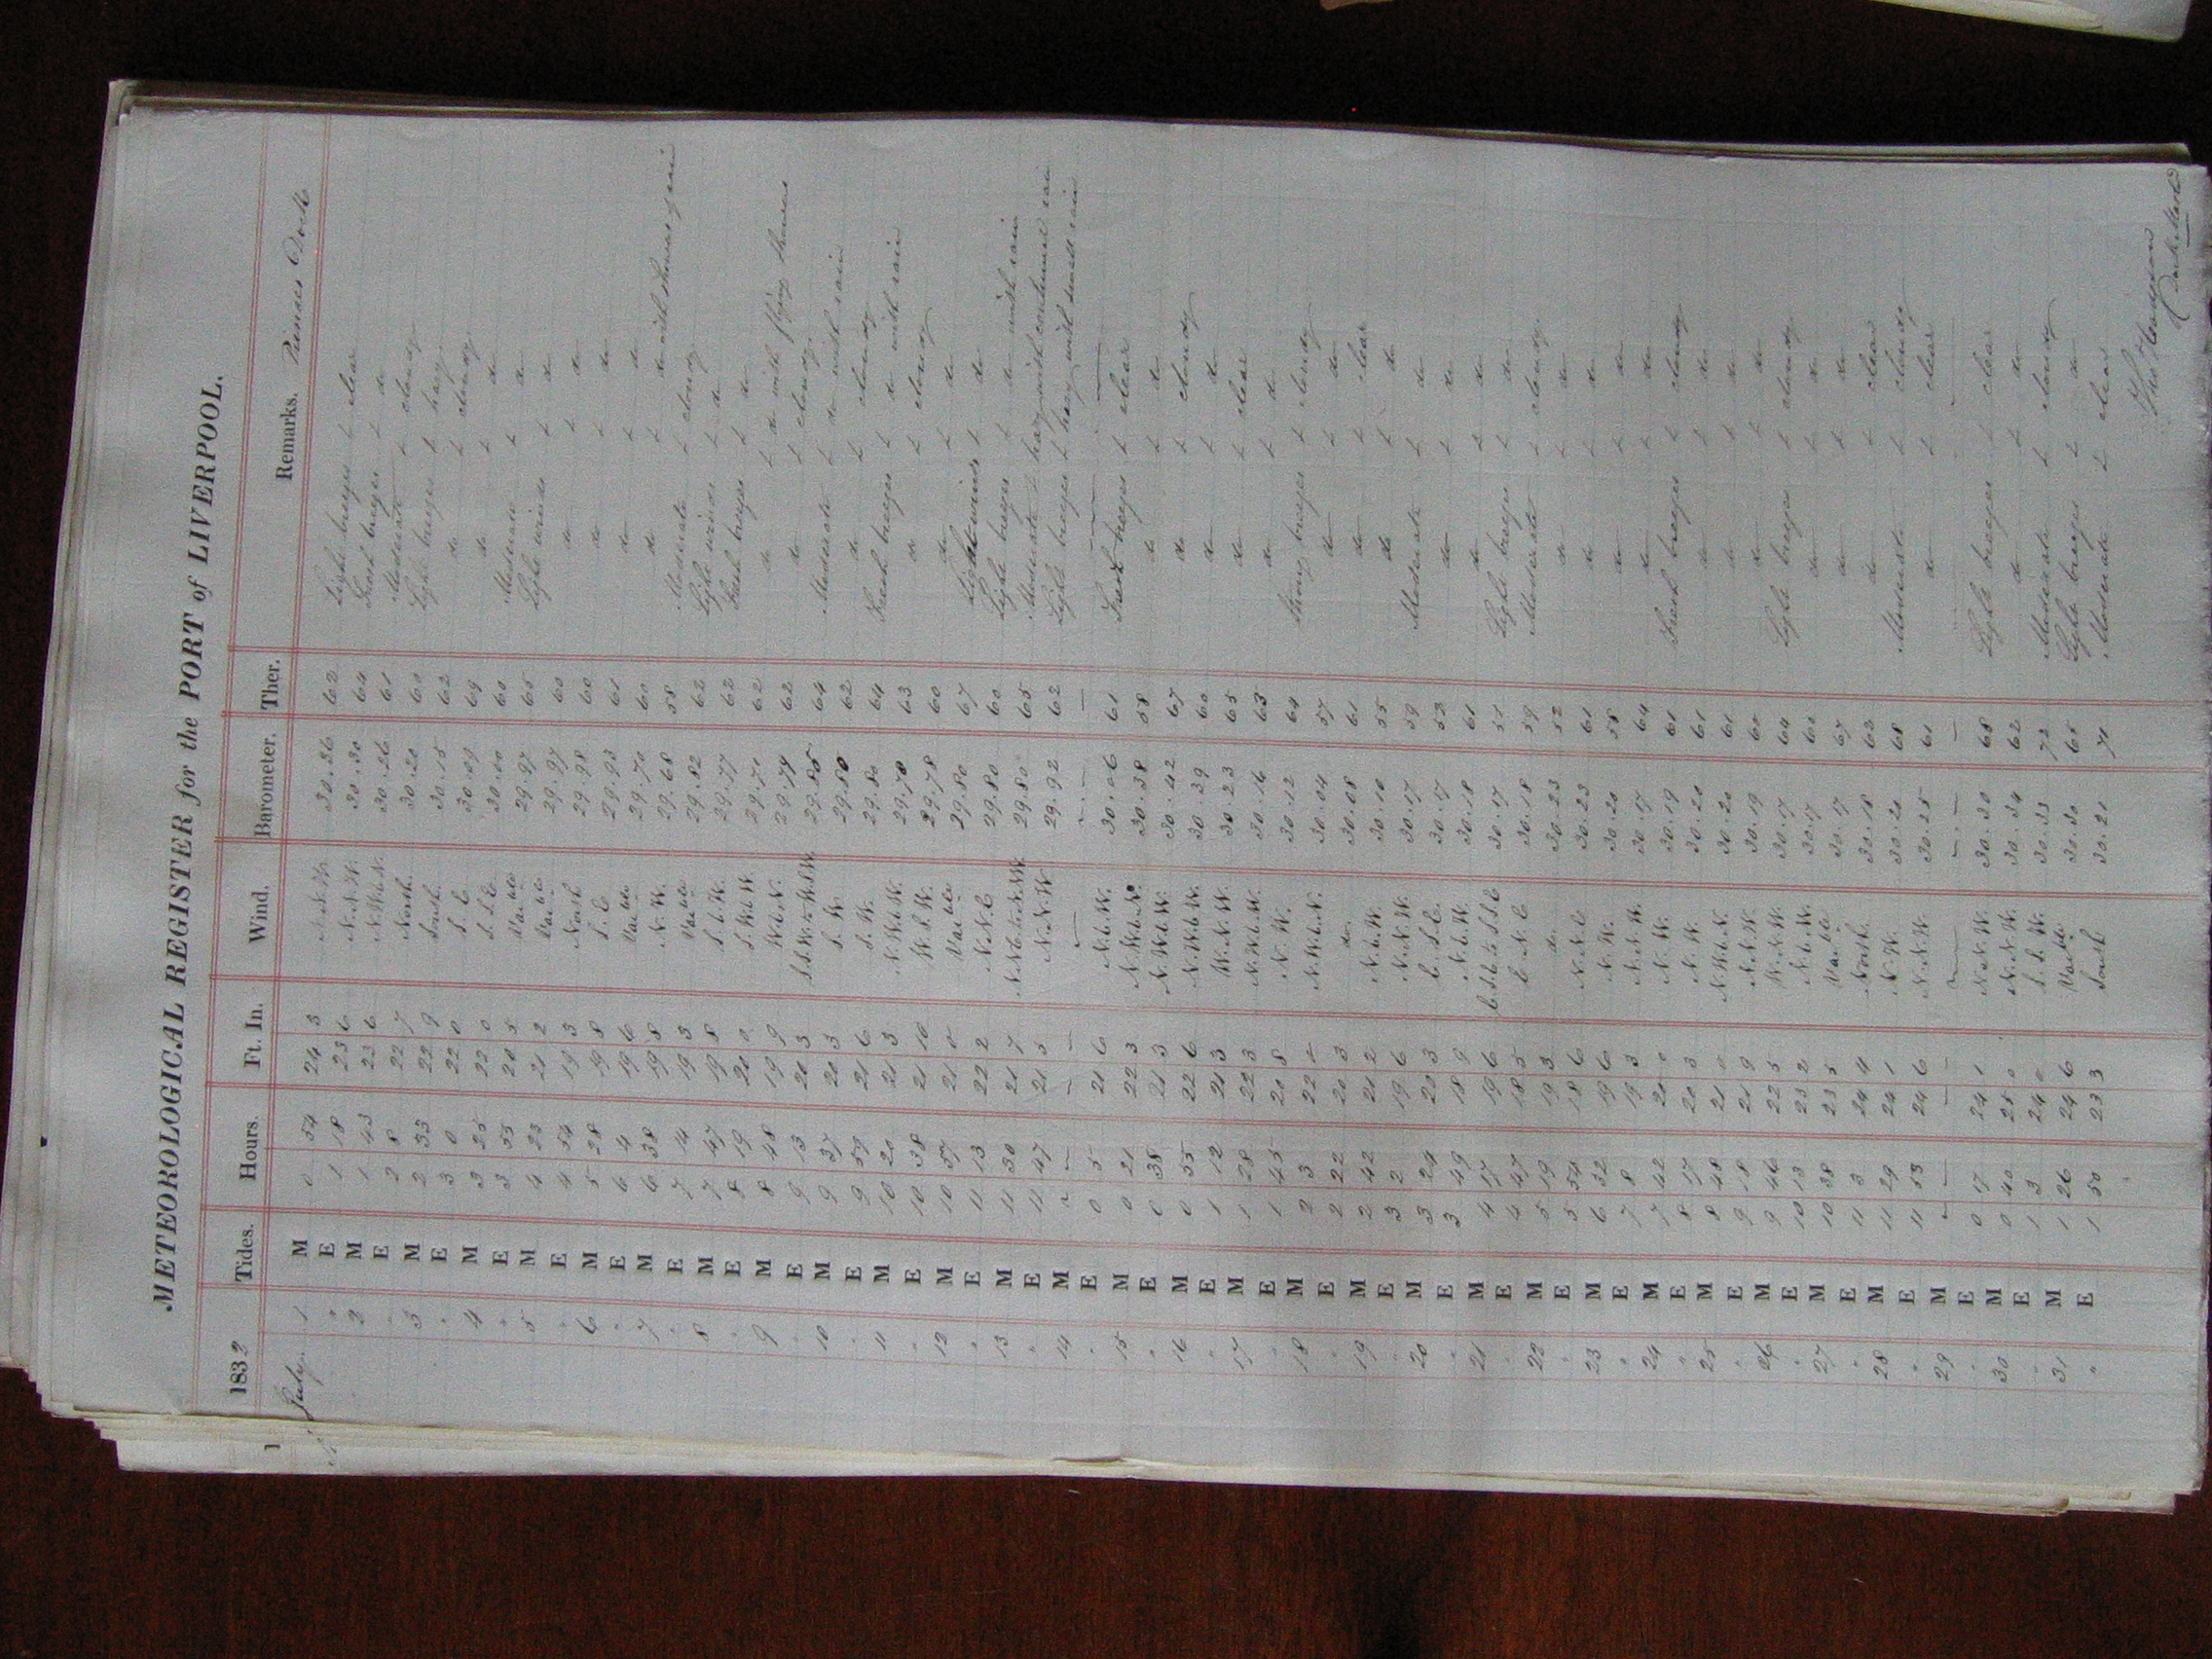 METEOROLOGICAL REGISTER for the PORT of LIVERPOOL.
1832 Tides. Hours. Ft. In. Wind. Barometer. Ther. Remarks. Princes Dock
July. 1 M 0 54 24 3 N.N.W. 30.36 62 Light breezes & clear
" E 1 18 23 6 N.N.W. 30.30 64 Fresh breezes & do
2 M 1 43 23 6 N.W.b.N. 30.26 61 Moderate & cloudy
" E 2 8 22 7 North. 30.20 60 Light breezes & hazy.
3 M 2 33 22 9 South. 30.15 62 do & cloudy.
" E 3 0 22 0 S.E 30.09 69 do & do
4 M 3 25 22 0 S.S.E. 30.00 60 Moderate & do
" E 3 55 20 5 Vaible 29.97 65 Light winds & do
5 M 4 23 21 2 Vaible 29.97 60 do & do
" E 4 54 19 3 North 29.98 60 do & do
6 M 5 28 19 8 S.E 29.93 61 do & do
" E 6 4 19 6 Vaible 29.70 60 do & do with showers of rain
7 M 6 38 19 8 N.W. 29.68 58 Moderate & cloudy.
" E 7 14 19 3 Vaible 29.82 62 Light winds & do
8 M 7 47 19 8 S.b.W. 29.77 62 Fresh breezes & do
" E 8 19 20 0 S.W.b.W. 29.71 62 do & do with flying showers
9 M 8 48 19 9 W.b.N. 29.79 62 do & cloudy.
" E 9 13 20 3 S.S.W. to W.S.W. 29.85 64 Moderate & do with rain
10 M 9 37 20 3 S.W 29.80 62 do & cloudy
" E 9 59 21 6 S.W. 29.80 64 Fresh breezes & do with rain
11 M 10 20 21 3 N.W.b.W. 29.78 63 do & cloudy
" E 10 38 21 10 W.S.W. 29.78 60 do & do
12 M 10 57 21 0 Vaible 29.80 67 Light winds & do
" E 11 13 22 2 N.N.E 29.80 60 Light breezes & do with rain
13 M 11 30 21 7 N.N.E. to N.N.W. 29.80 65 Moderate & hazy with continual rain
" E 11 47 21 5 N.N.W 29.92 62 Light breezes & hazy with small rain
14 M — — — — — —.— — — —
" E 0 5 21 6 N.b.W. 30.06 61 Fresh breezes & clear
15 M 0 21 22 3 N.W.b.N. 30.38 58 do & do
" E 0 38 21 3 N.W.b.W. 30.42 67 do & cloudy
16 M 0 55 22 6 N.W.b.W. 30.39 60 do & do
" E 1 12 21 3 W.N.W. 30.23 65 do & clear
17 M 1 28 22 3 N.W.b.W. 30.16 63 do & do
" E 1 45 20 8 N.W. 30.12 64 Strong breezes & cloudy
18 M 2 3 22 0 N.W.b.N. 30.04 57 do & do
" E 2 22 20 3 do. 30.08 61 do & clear
19 M 2 42 21 2 N.b.W. 30.10 55 do & do
" E 3 2 19 6 N.N.W. 30.17 59 Moderate & do
20 M 3 24 20 3 E.S.E. 30.17 52 do & do
" E 3 49 18 9 N.b.W. 30.18 61 do & do
21 M 4 17 19 6 E.S.E. to S.S.E 30.17 51 Light breezes & do
" E 4 47 18 5 E.N.E 30.18 59 Moderate & cloudy.
22 M 5 19 19 3 do. 30.23 52 do & do
" E 5 54 18 6 N.N.E 30.23 61 do & do
23 M 6 32 19 6 N.W. 30.20 58 do & do
" E 7 8 19 3 N.N.W. 30.17 64 do & do
24 M 7 42 20 0 N.W. 30.19 61 Fresh breezes & cloudy
" E 8 17 20 3 N.W. 30.20 61 do & do
25 M 8 48 21 0 N.W.b.N. 30.20 61 do & do
" E 9 18 21 9 N.N.W. 30.19 60 do & do
26 M 9 46 22 5 W.N.W. 30.17 64 Light breezes & cloudy
" E 10 13 23 2 N.b.W. 30.17 60 do & do
27 M 10 38 23 5 Vaible 30.17 67 do & do
" E 11 3 24 4 North. 30.18 62 do & clear
28 M 11 29 24 1 N.W. 30.21 68 Moderate & cloudy
" E 11 53 24 6 N.N.W. 30.25 61 do & clear
29 M — — — — — —.— — — —
" E 0 17 24 1 N.N.W. 30.30 68 Light breezes & clear
30 M 0 40 25 0 N.N.W. 30.34 62 do & do
" E 1 3 24 0 S.S.W. 30.33 72 Moderate & cloudy
31 M 1 26 24 6 Vaible 30.30 65 Light breezes & do
" E 1 50 23 3 South 30.21 71 Moderate & clear
Thos Hodgson
Dock Master